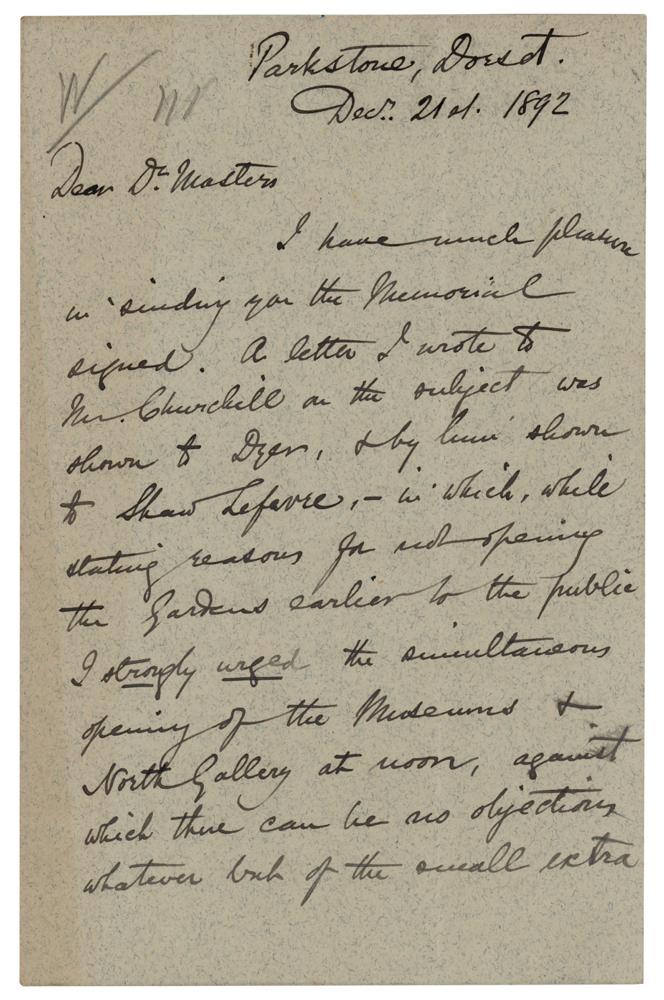 Parkstone, Dorset.
Decr. 21st. 1892
Dear Dr. Masters
I have much pleasure
in sending you the Memorial
signed. A letter I wrote to
Mr. Churchill on the subject was
shown to Dyer, & by him shown
to Shaw Lefevre, – in which, while
stating reasons for not opening
the Gardens earlier to the public
I strongly urged the simultaneous
opening of the Museums &
North Gallery at noon, against
which there can be no objections
whatever but of the small extra